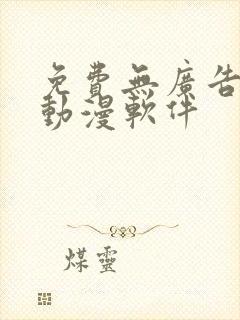 免費無廣告
動漫軟件
煤靈